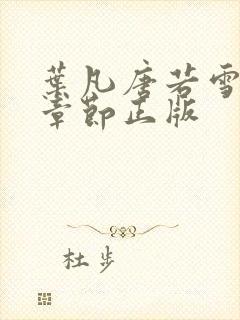 葉凡唐若雪
章節正版
杜步